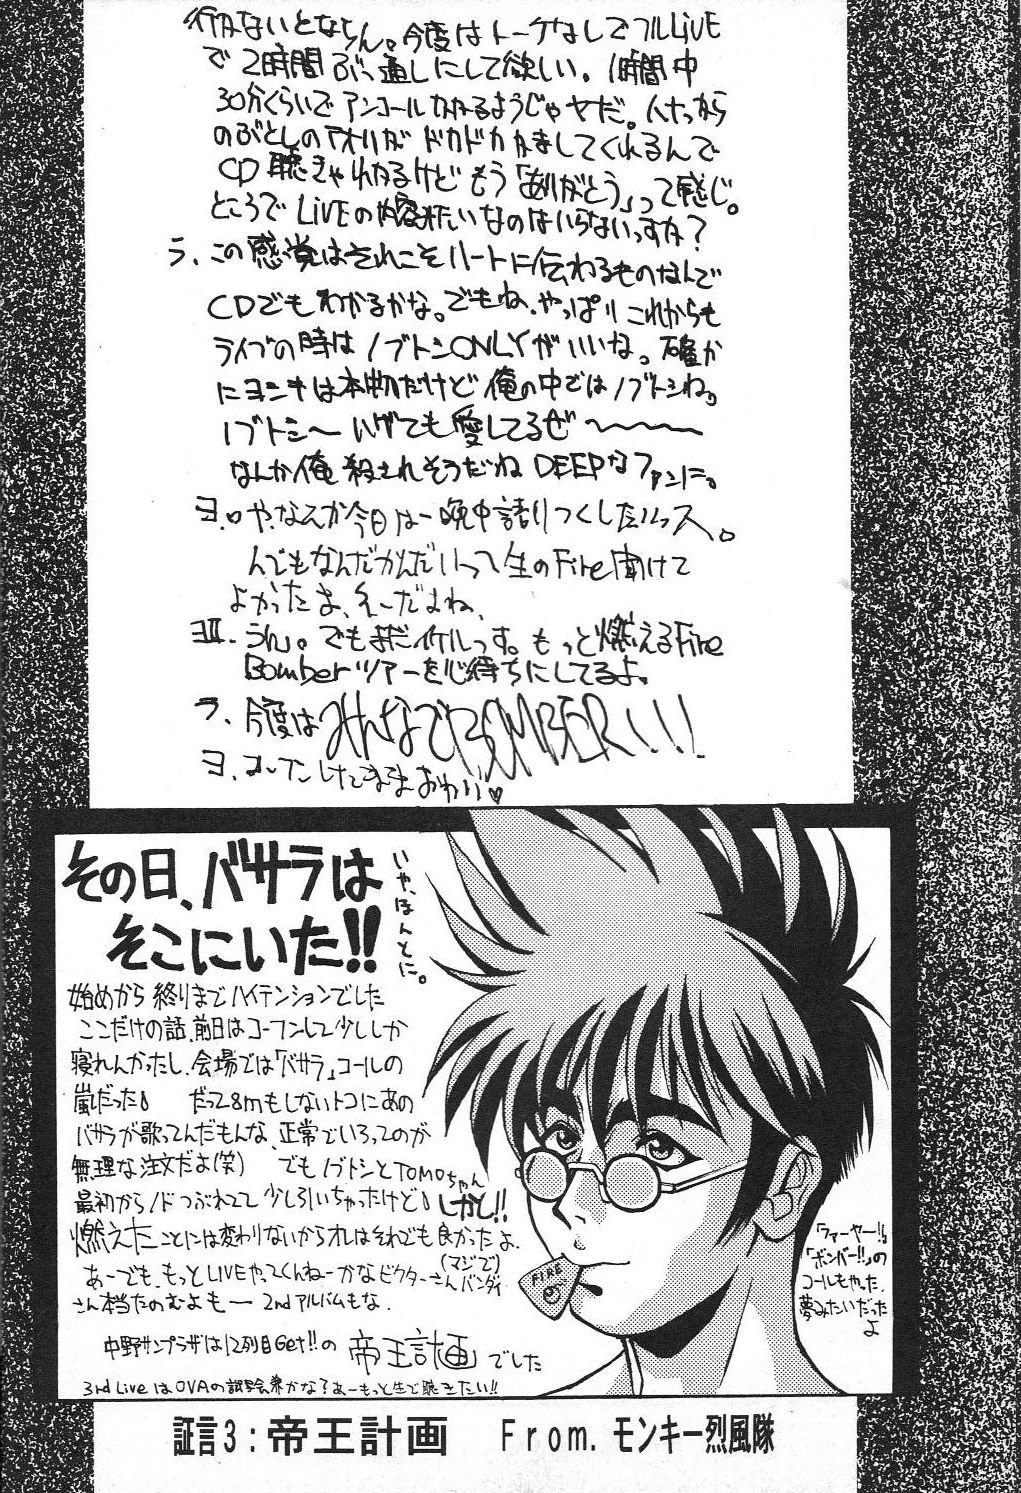 行かないとなりん。今度はトークなしでフルLiVE
で2時間ぶっ通しにして欲しい。1時間中
30分くらいでアンコールかかるようじゃヤだ。
のぶとしの ドカドカかましてくれるんで
CD聴きゃわかるけどもう「ありがとう」って感じ。
ところでLiVEの内容 なのはいらないっすか?
ラ、この感覚はそれこそハートに伝わるものなんで
CDでもわかるかな。でもね、やっぱりこれからも
ライブの時はノブトシONLYがいいな。確か
にヨシキは本物だけど俺の中ではノブトシね。
ノブトシ〜 ても愛してるぜ〜
なんか俺殺されそうだねDEEPなファンに。
ヨ. 今日は一晩中語りつくしたいっス。
んでもなんだかんだいって生のFire聞けて
よかったよ、そーだよね、
ヨII. うん。でもまだイケルっす。もっと燃えるFire
Bomberツアーを心待ちにしてるよ。
ラ、今度はみんなでBOMBER!!!
ヨ、 おわり♥
その日、バサラは
そこにいた!!
いや、ほんとに。
始めから終りまでハイテンションでした
ここだけの話、前日はコーフンして少ししか
寝れんかったし、会場では「バサラ」コールの
嵐だった! だって8mもしないトコにあの
バサラが歌ってんだもんな、正常でいろってのが
無理な注文だよ(笑) でもノブトシとTOMOちゃん
最初からノドつぶれてて少し引いちゃったけど! しかし!!
燃えたことには変わりないからオレはそれでも良かったよ.
あーでも、もっとLIVEやってくんねーかなビクターさん(マジで)バンダイ
さん本当たのむよもー 2ndアルバムもな.
中野サンプラザは12列目Get!!の 帝王計画 でした
3rd LiveはOVAの試写会兼かな?あーもっと生で聴きたい!!
「ファーヤー!!」
「ボンバー!!」の
コールもやった.
夢みたいだった
よ
FIRE
証言3:帝王計画 From.モンキー烈風隊